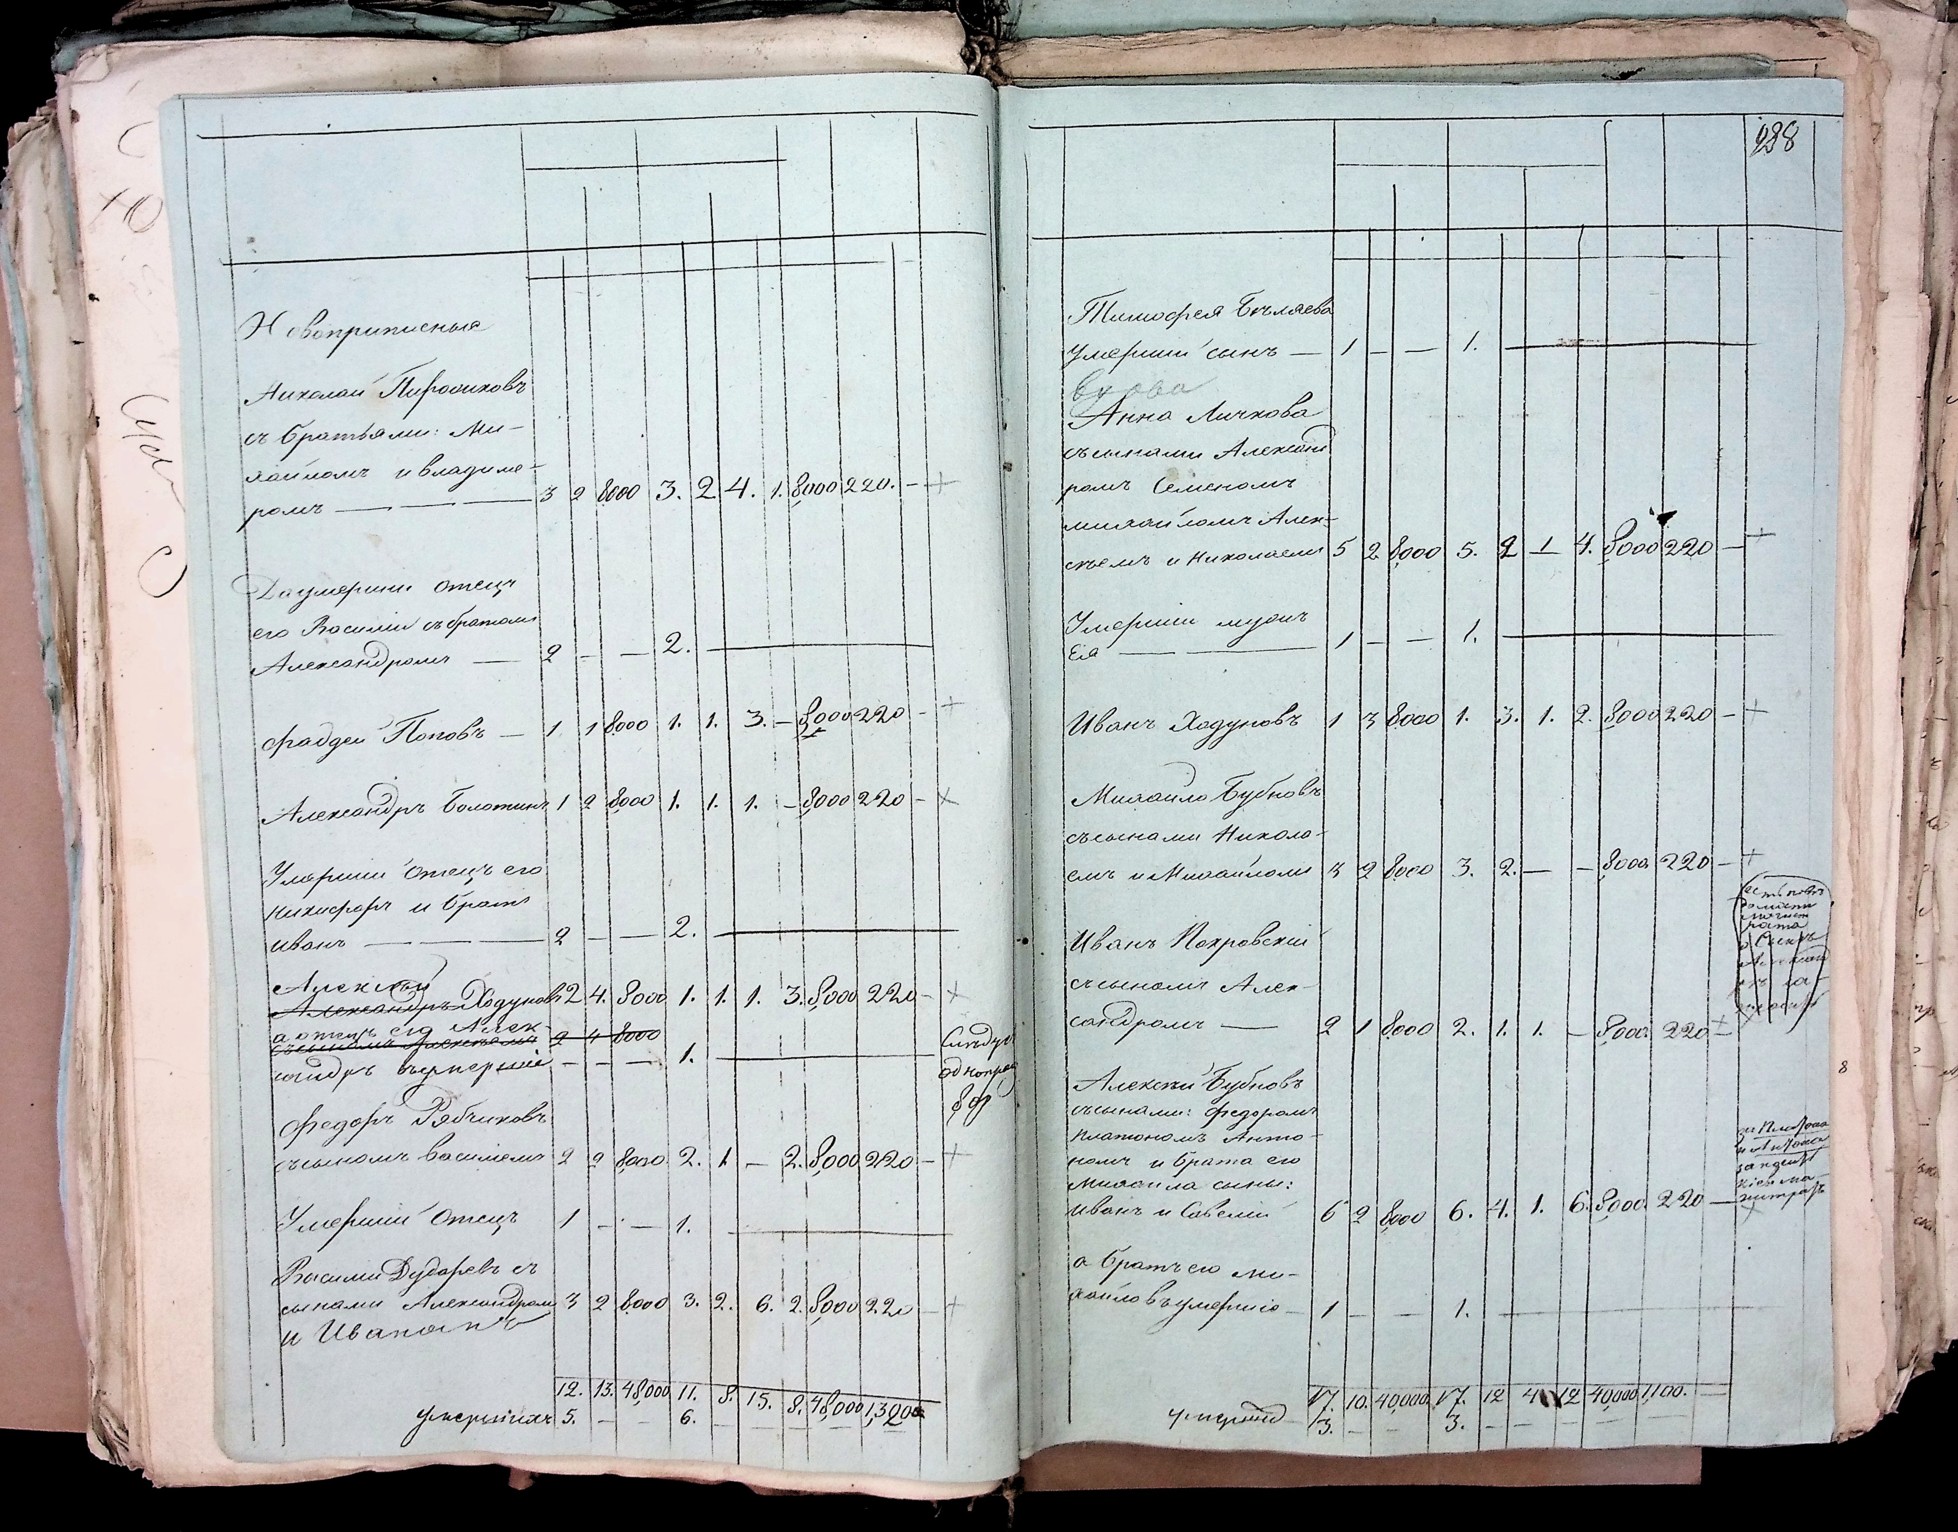 Новоприписные
Николай Пирожковъ
съ братьями: Ми-
хаиломъ и владиме-
ромъ — 3 2 8,000 3. 2 4. 1. 8,000 220. - +
Да умершіи отецъ
его Василіи съ братомъ
Александромъ — 2 — — 2. —
Фаддеи Поповъ — 1 1 8,000 1. 1. 3. - 8,000 220 - +
Александръ Болотинъ 1 2 8,000 1. 1. 1. - 8,000 220 - +
Умершіи Отецъ его
Никифоръ и братъ
иванъ — 2 — — 2. —
Алексѣй
Александръ Ходуновъ 2 4. 8000 1. 1. 1. 3. 8,000 220 - +
а отецъ его Алек-
съ сыномъ Алексѣемъ 2 4 8000
сандръ умершіе — — — 1. —
Федоръ Рябчиковъ
съ сыномъ василіемъ 2 2 8,000 2. 1 — 2. 8,000 220 - +
Умершіи Отецъ 1 — — 1. —
Василіи Дударевъ съ
сынами Александромъ 3 2 8,000 3. 2. 6. 2. 8,000 220 - +
и Иваномъ
12. 13. 48,000 11. 8. 15. 8. 48,000 1,320
умершихъ 5. — — 6. —
188
Тимофея Бѣляева
умершіи сынъ — 1 — — 1. —
вдова
Анна Личкова
съ сынами Александ
ромъ Семеномъ
михаиломъ Алек-
сѣемъ и Николаемъ 5 2 8,000 5. 2 1 4. 8,000 220 — +
Умершіи мужъ
Ея — 1 — — 1. —
Иванъ Ходуновъ 1 3 8,000 1. 3. 1. 2. 8,000 220 - +
Михаило Бубновъ
съ сынами Никола-
емъ и Михаиломъ 3 2 8,000 3. 2. — - 8,000 220 - +
Иванъ Покровскіи
съ сыномъ Алек-
сандромъ — 2 1 8,000 2. 1. 1. - 8,000. 220 +
Алексѣи Бубновъ
съ сынами: Федоромъ
платономъ Анто-
номъ и брата его
михаила сыны:
иванъ и Савелій 6 2 8,000 6. 4. 1. 6. 8,000. 220 — +
а братъ его ми-
хаиловъ умершіо — 1 — — 1. —
17. 10. 40,000 17. 12 4 12 40,000 1,100. —
3. — — 3. — —